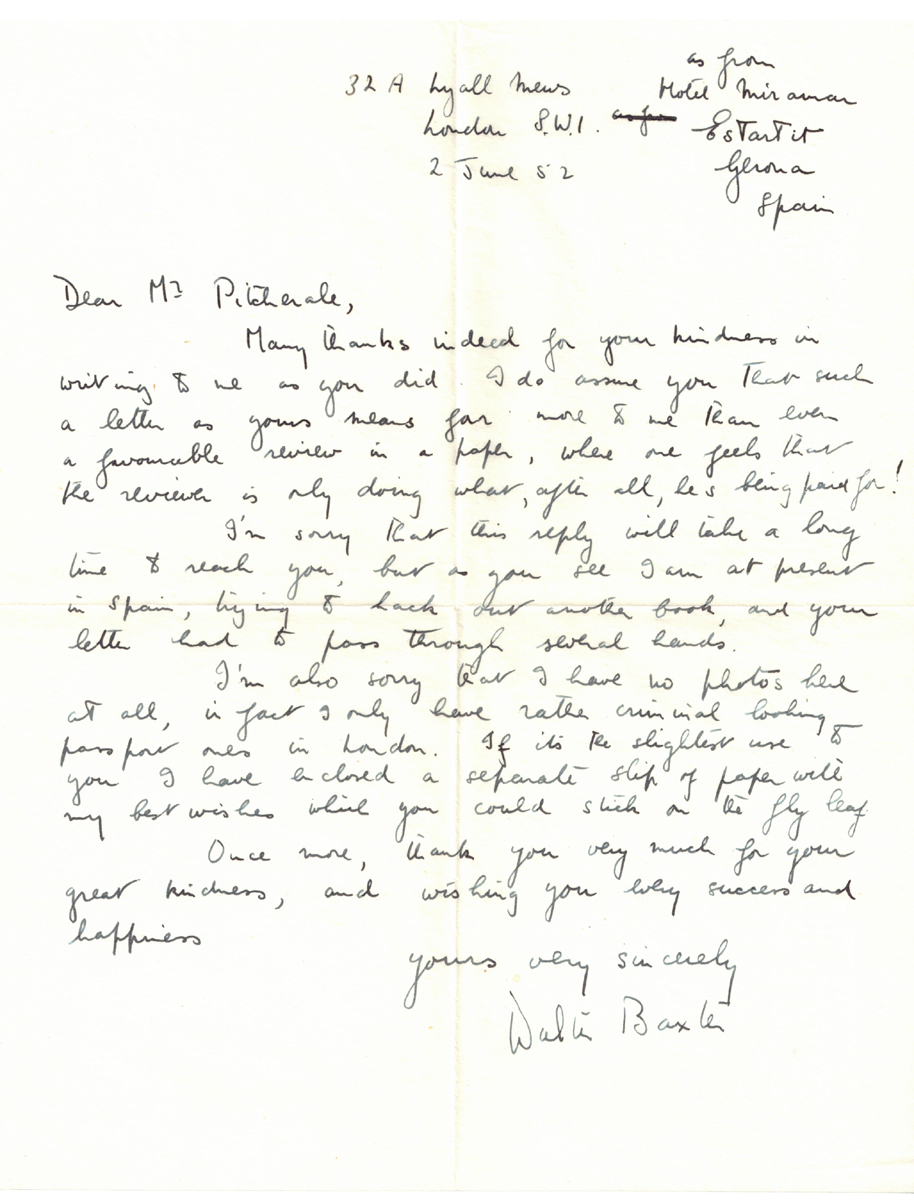 as from
32 A Lyall Mews Hotel Miramar
London S.W.1. as from Estartit
2 June 52 Gerona
Spain
Dear Mr Pitcherale,
Many thanks indeed for your kindness in
writing to me as you did. I do assure you that such
a letter as yours means far more to me than even
a favourable review in a paper, where one feels that
the reviewer is only doing what, after all, he's being paid for!
I'm sorry that this reply will take a long
time to reach you, but as you see I am at present
in Spain, trying to hack out another book, and your
letter had to pass through several hands.
I'm also sorry that I have no photos here
at all, in fact I only have rather criminal looking
passport ones in London. If its the slightest use to
you I have enclosed a separate slip of paper with
my best wishes which you could stick on the fly leaf
Once more, thank you very much for your
great kindness, and wishing you every success and
happiness
yours very sincerely
Walter Baxter